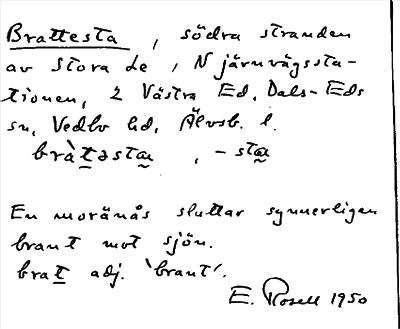 Brattesta, södra stranden
av Stora Le, N järnvägssta-
tionen, 2 Västra Ed, Dals-Eds
sn, Vedbo hd, Älvsb. l.
bràt̲əsta̰, -sta̰
En moränås sluttar synnerligen
brant mot sjön.
brat̲ adj. 'brant'.
E. Rosell 1950